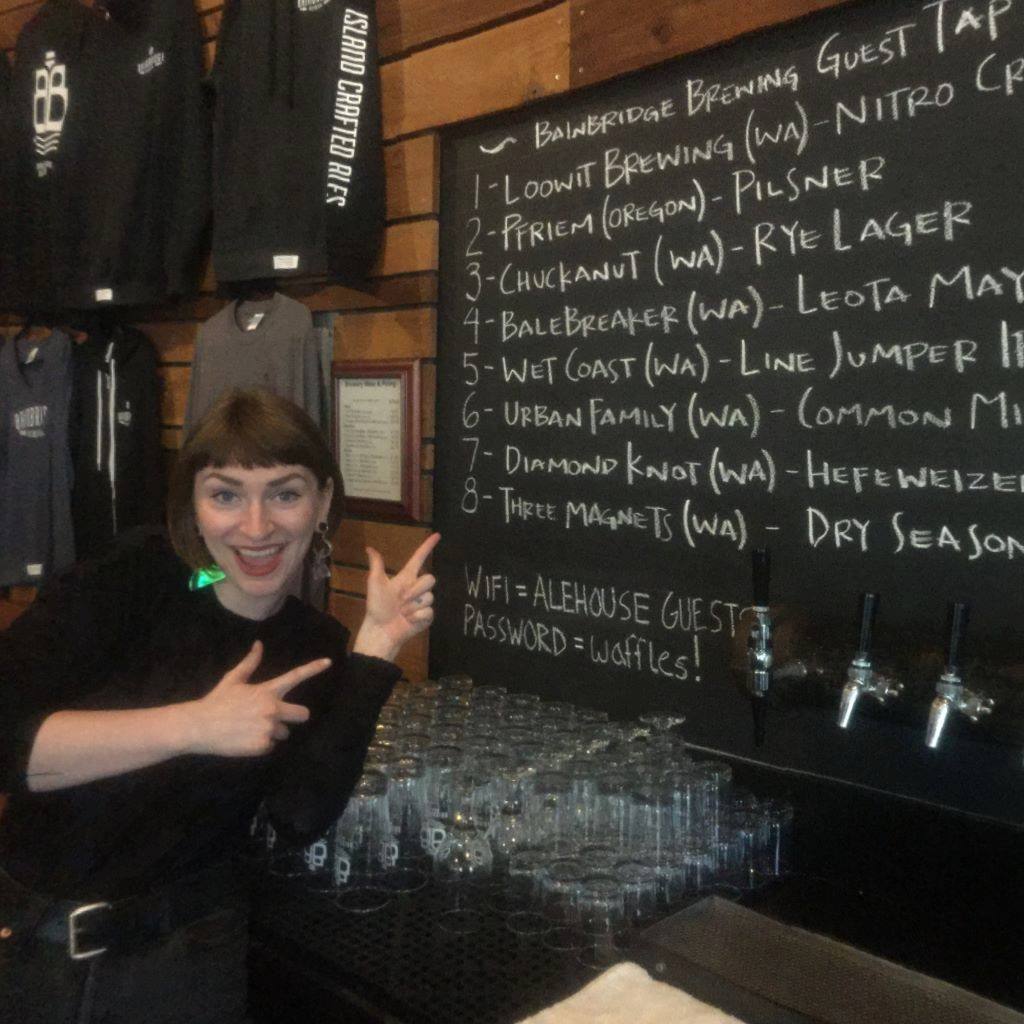 ISLAND CRAFTED ALES
~ BAINBRIDGE BREWING GUEST TAP
1-LOOWIT BREWING (WA)-NITRO CR
2-PFRIEM (OREGON)-PILSNER
3-CHUCKANUT (WA)-RYE LAGER
4-BALEBREAKER (WA)-LEOTA MAY
5-WET COAST (WA)-LINE JUMPER I
6-URBAN FAMILY (WA)-COMMON MI
7-DIAMOND KNOT (WA)-HEFEWEIZE
8-THREE MAGNETS (WA) - DRY SEASON
WIFI = ALEHOUSE GUEST
PASSWORD = waffles!